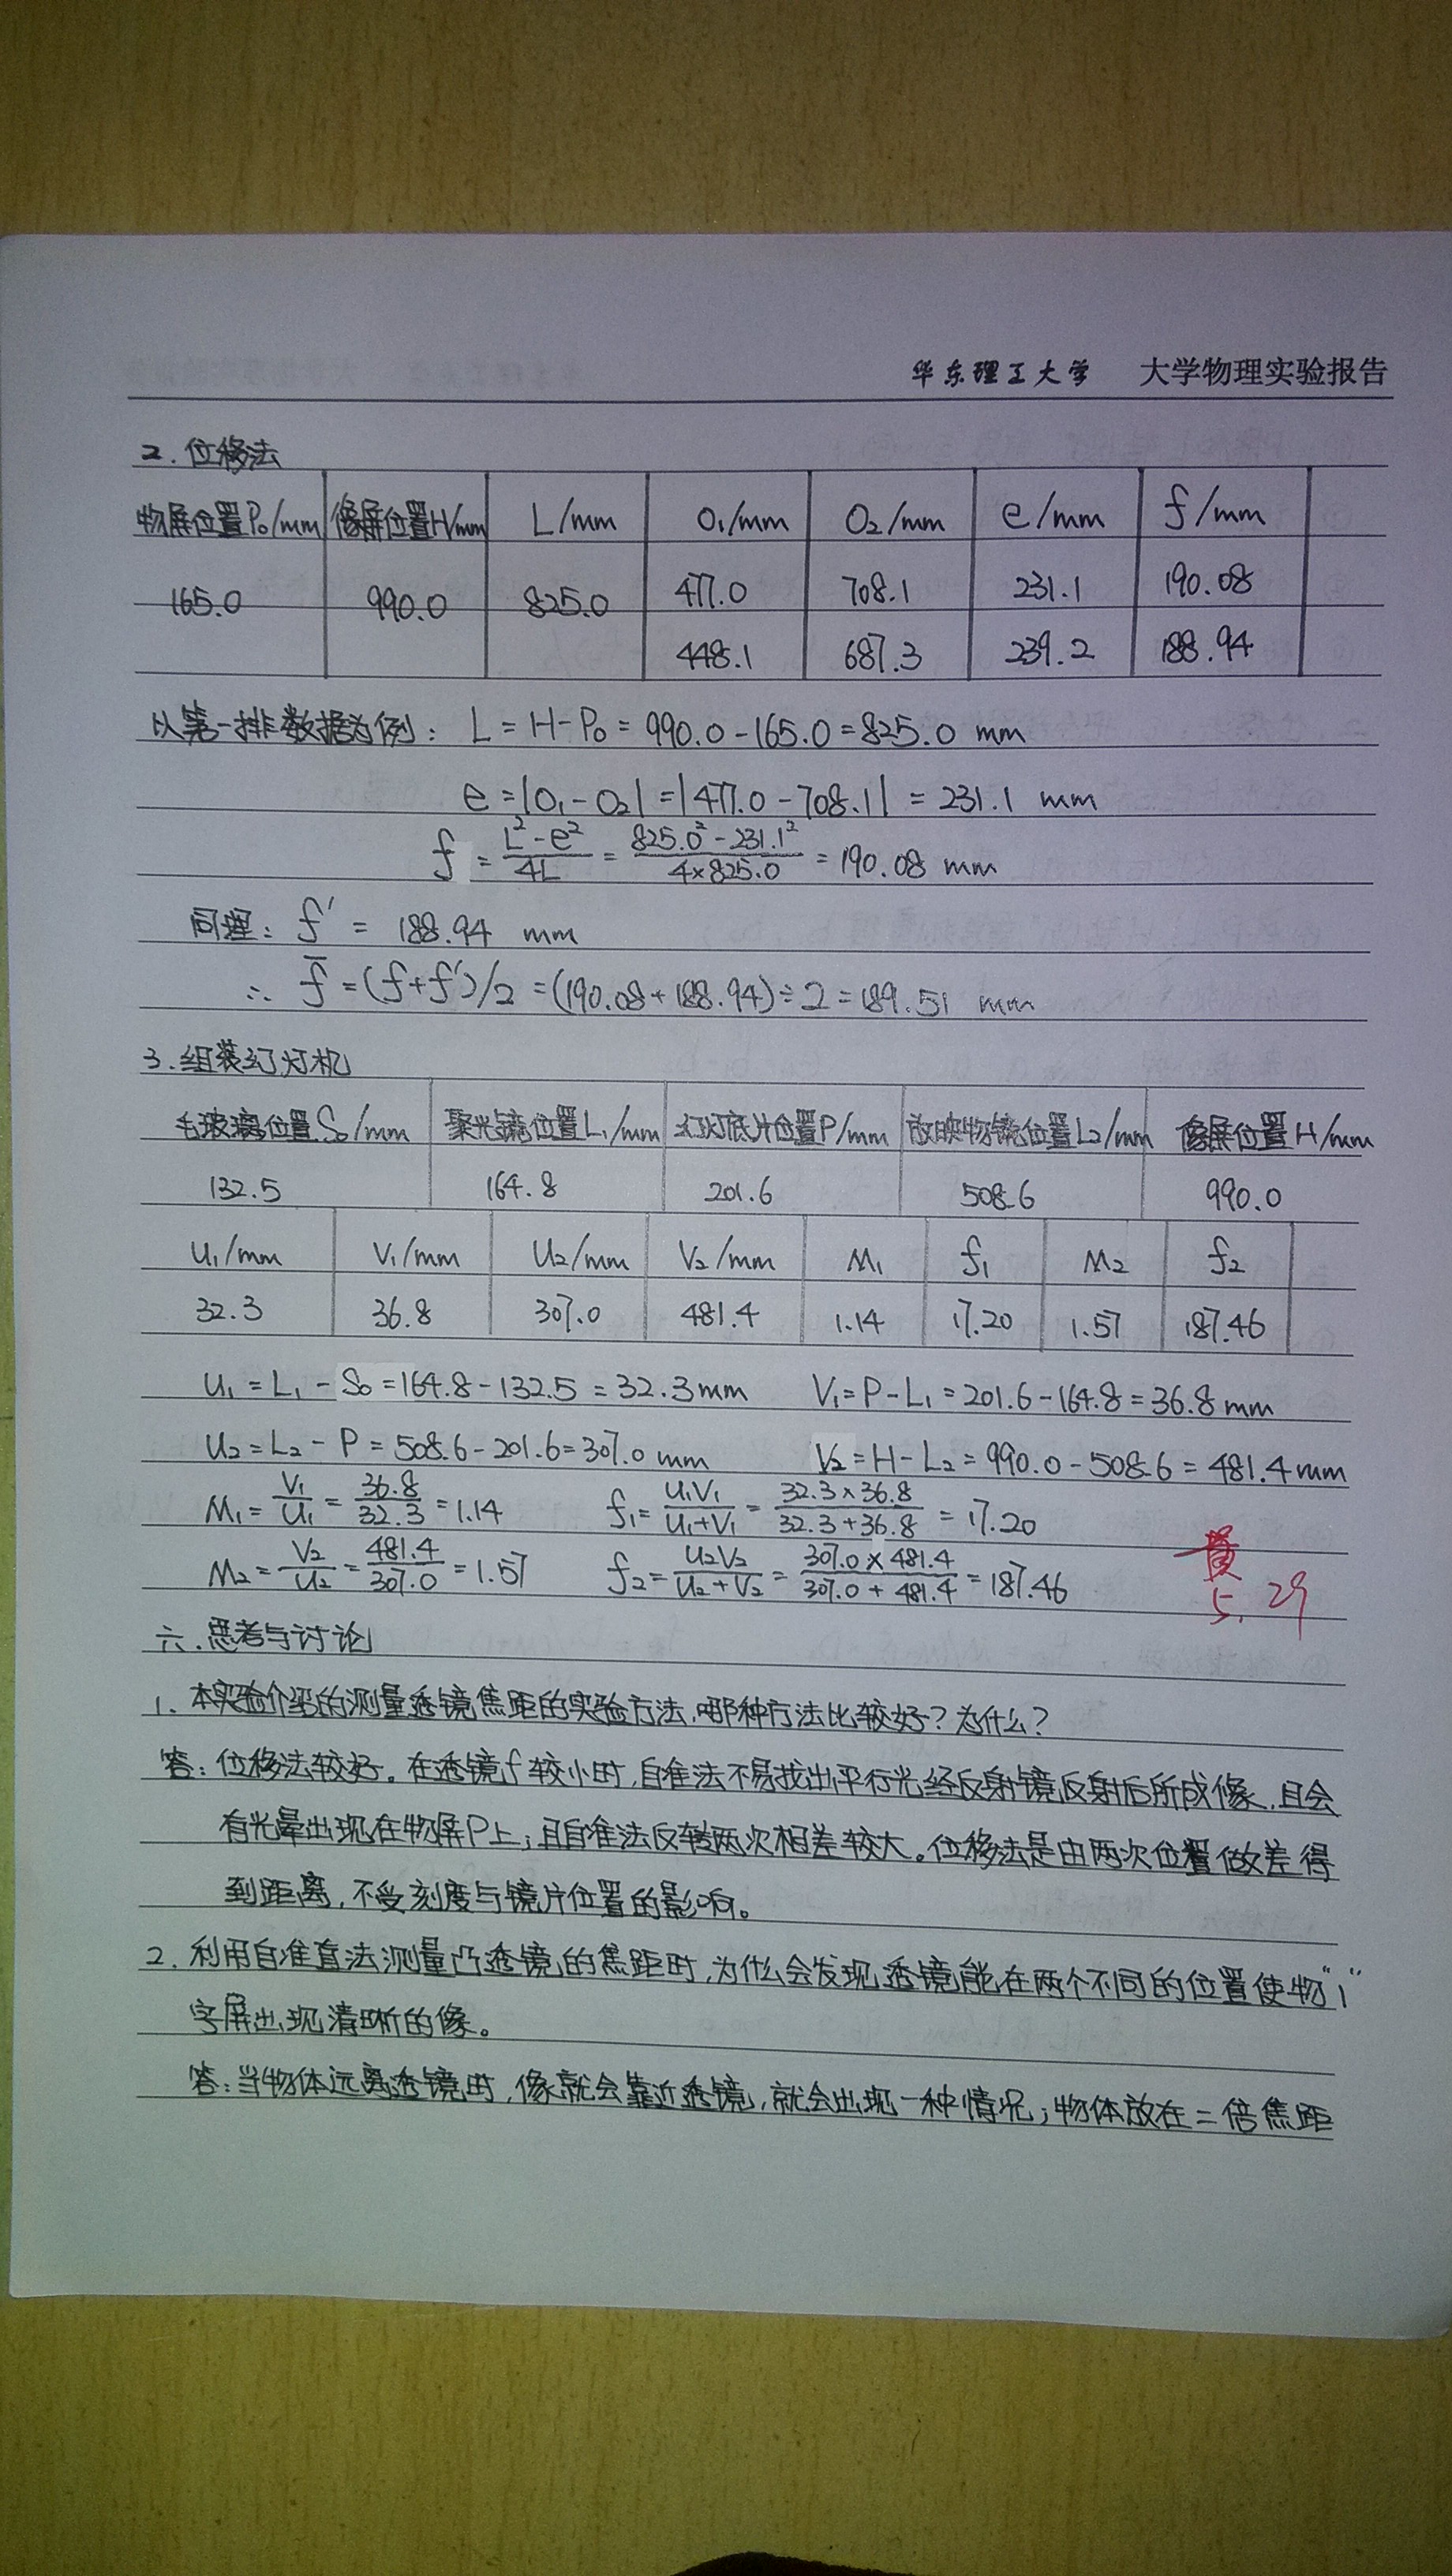 华东理工大学 大学物理实验报告
2. 位移法
物屏位置P₀/mm 像屏位置H/mm L/mm O₁/mm O₂/mm e/mm f/mm
165.0 990.0 825.0 477.0 708.1 231.1 190.08
448.1 687.3 239.2 188.94
以第一排数据为例: L = H - P₀ = 990.0 - 165.0 = 825.0 mm
e = |O₁ - O₂| = |477.0 - 708.1| = 231.1 mm
f = (L² - e²)/4L = (825.0² - 231.1²)/(4×825.0) = 190.08 mm
同理: f' = 188.94 mm
∴ f̄ = (f+f')/2 = (190.08+188.94)÷2 = 189.51 mm
3. 组装幻灯机
毛玻璃位置S₀/mm 聚光镜位置L₁/mm 幻灯底片位置P/mm 放映物镜位置L₂/mm 像屏位置H/mm
132.5 164.8 201.6 508.6 990.0
U₁/mm V₁/mm U₂/mm V₂/mm M₁ f₁ M₂ f₂
32.3 36.8 307.0 481.4 1.14 17.20 1.57 187.46
U₁ = L₁ - S₀ = 164.8 - 132.5 = 32.3mm V₁ = P - L₁ = 201.6 - 164.8 = 36.8mm
U₂ = L₂ - P = 508.6 - 201.6 = 307.0 mm V₂ = H - L₂ = 990.0 - 508.6 = 481.4mm
M₁ = V₁/U₁ = 36.8/32.3 = 1.14 f₁ = U₁V₁/(U₁+V₁) = (32.3×36.8)/(32.3+36.8) = 17.20
M₂ = V₂/U₂ = 481.4/307.0 = 1.57 f₂ = U₂V₂/(U₂+V₂) = (307.0×481.4)/(307.0+481.4) = 187.46
5.29
六. 思考与讨论
1. 本实验介绍的测量透镜焦距的实验方法,哪种方法比较好?为什么?
答: 位移法较好。在透镜f较小时,自准法不易找出平行光经反射镜反射后所成像,且会
有光晕出现在物屏P上;且自准法反转两次相差较大。位移法是由两次位置做差得
到距离,不受刻度与镜片位置的影响。
2. 利用自准直法测量凸透镜的焦距时,为什么会发现透镜能在两个不同的位置使物"1"
字屏出现清晰的像。
答: 当物体远离透镜时,像就会靠近透镜,就会出现一种情况;物体放在二倍焦距